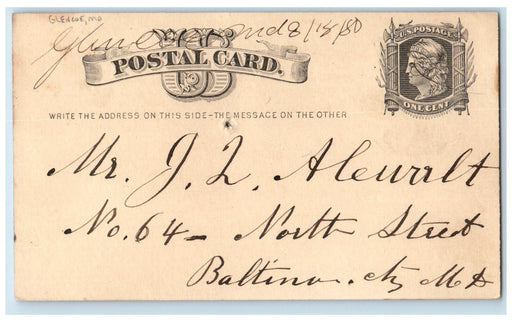 GLENCOE, MD
Glencoe Md 8/18/80
U.S. POSTAGE
POSTAL CARD.
ONE CENT
WRITE THE ADDRESS ON THIS SIDE-THE MESSAGE ON THE OTHER
Mr. J. Q. Alewalt
No. 64 - North Street
Baltimo. City Md